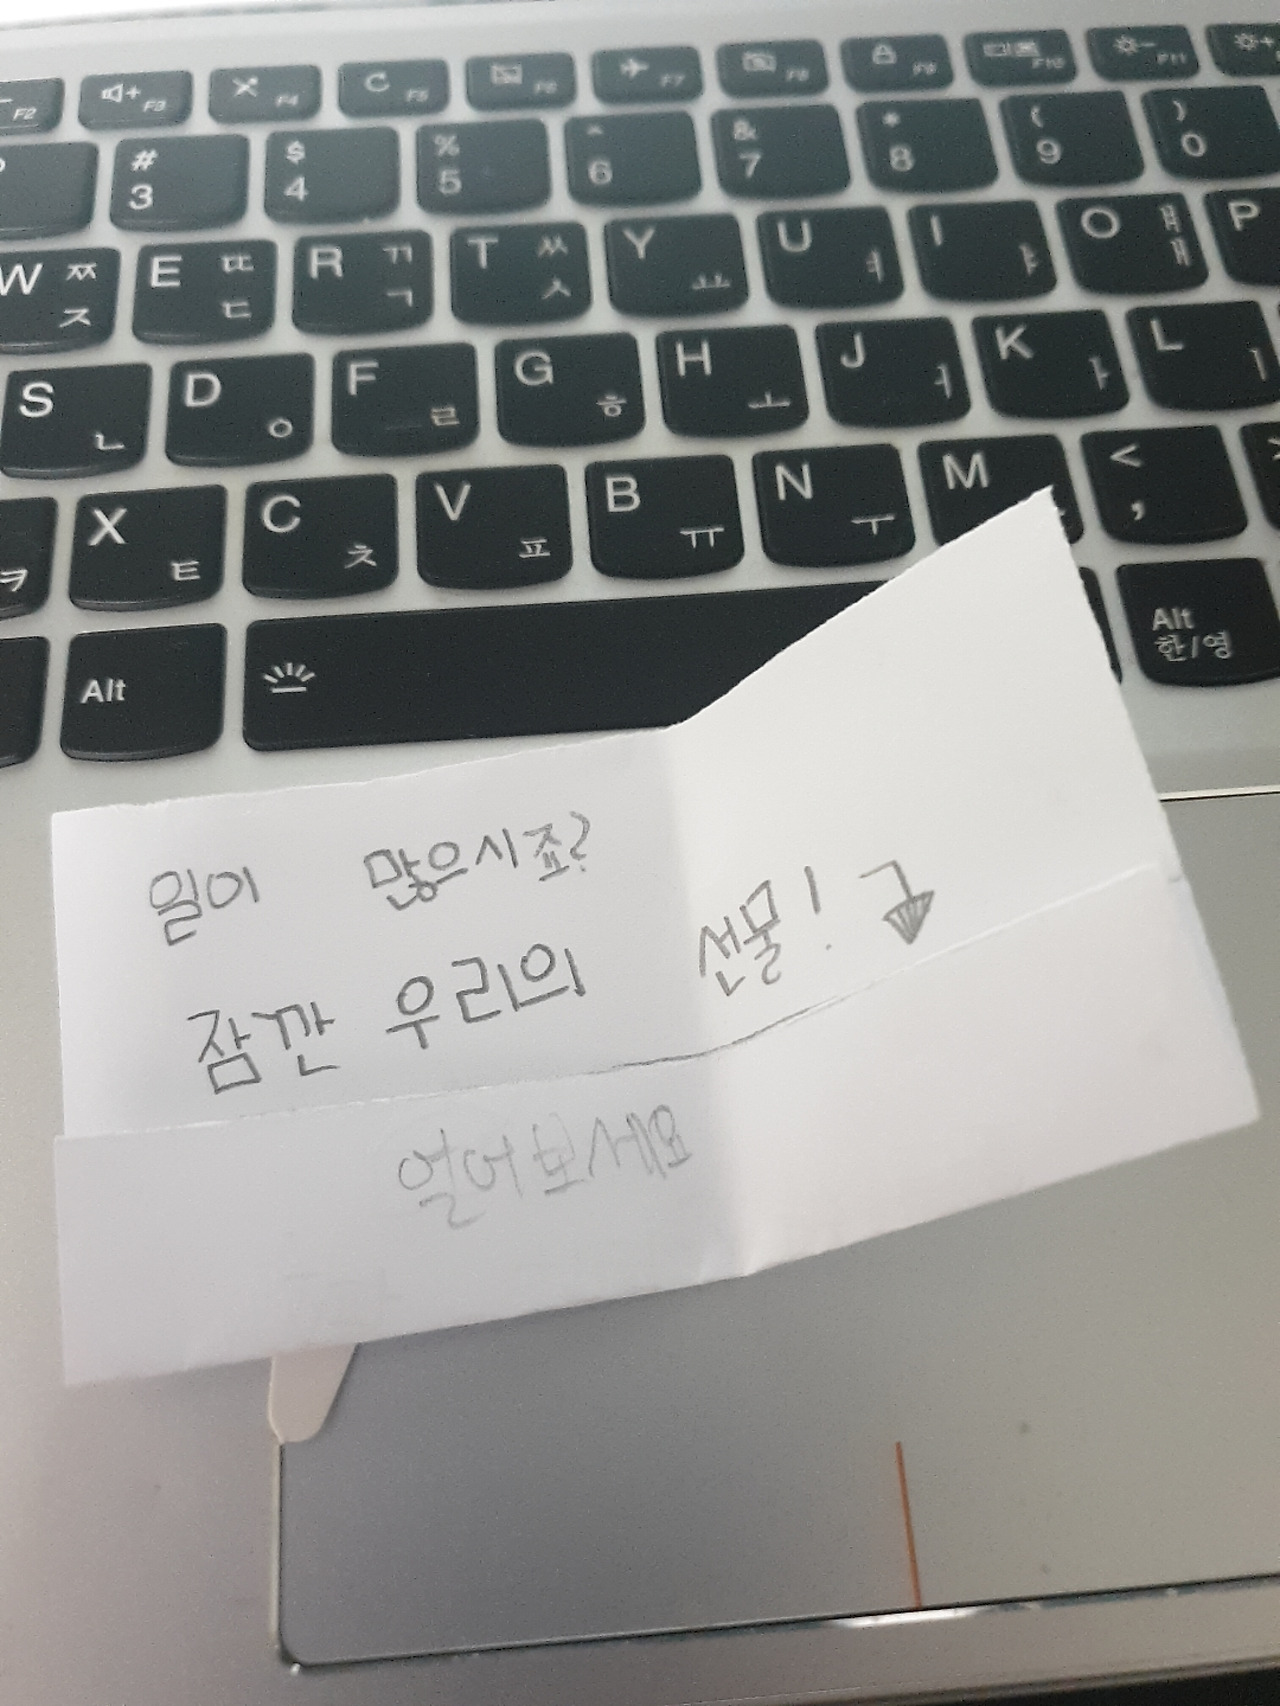 F2 F3 F4 F5 F6 F7 F8 F9 F10 F11
# 3 $ 4 % 5 ^ 6 & 7 * 8 ( 9 ) 0
W ㅉ ㅈ E ㄸ ㄷ R ㄲ ㄱ T ㅆ ㅅ Y ㅛ U ㅕ I ㅑ O ㅒ ㅐ P
S ㄴ D ㅇ F ㄹ G ㅎ H ㅗ J ㅓ K ㅏ L ㅣ
ㅋ X ㅌ C ㅊ V ㅍ B ㅠ N ㅜ M < , >
Alt Alt 한/영
일이 많으시죠?
잠깐 우리의 선물!
열어보세요